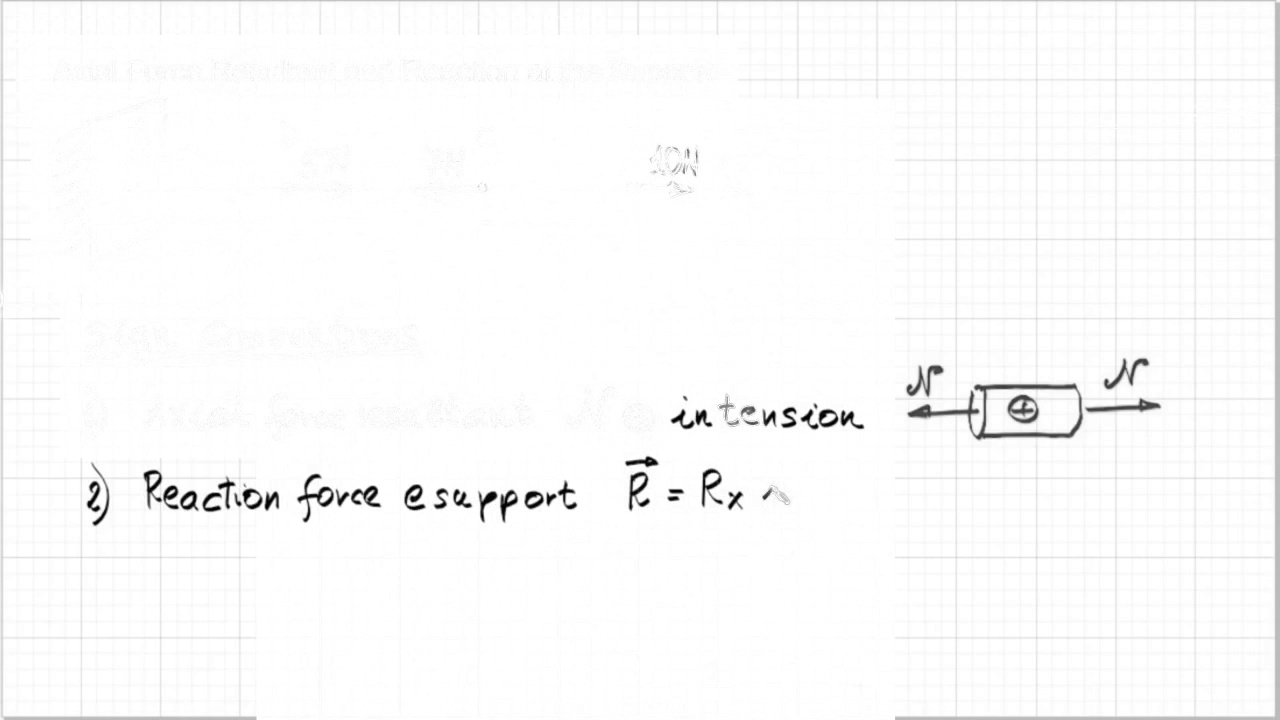 Axial Force Resultant and Reaction at the Support
5N 7N 10N
Sign Conventions
1) Axial force resultant N ⊕ in tension
N ⊕ N
2) Reaction force @ support R⃗ = Rx